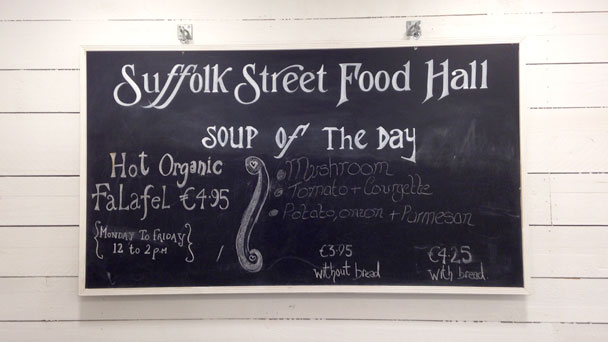 Suffolk Street Food Hall
Soup of The Day
Hot Organic
Falafel €4.95
{Monday To Friday}
12 to 2pm
Mushroom
Tomato + Courgette
Potato, onion + Parmesan
€3.95
without bread
€4.25
with bread